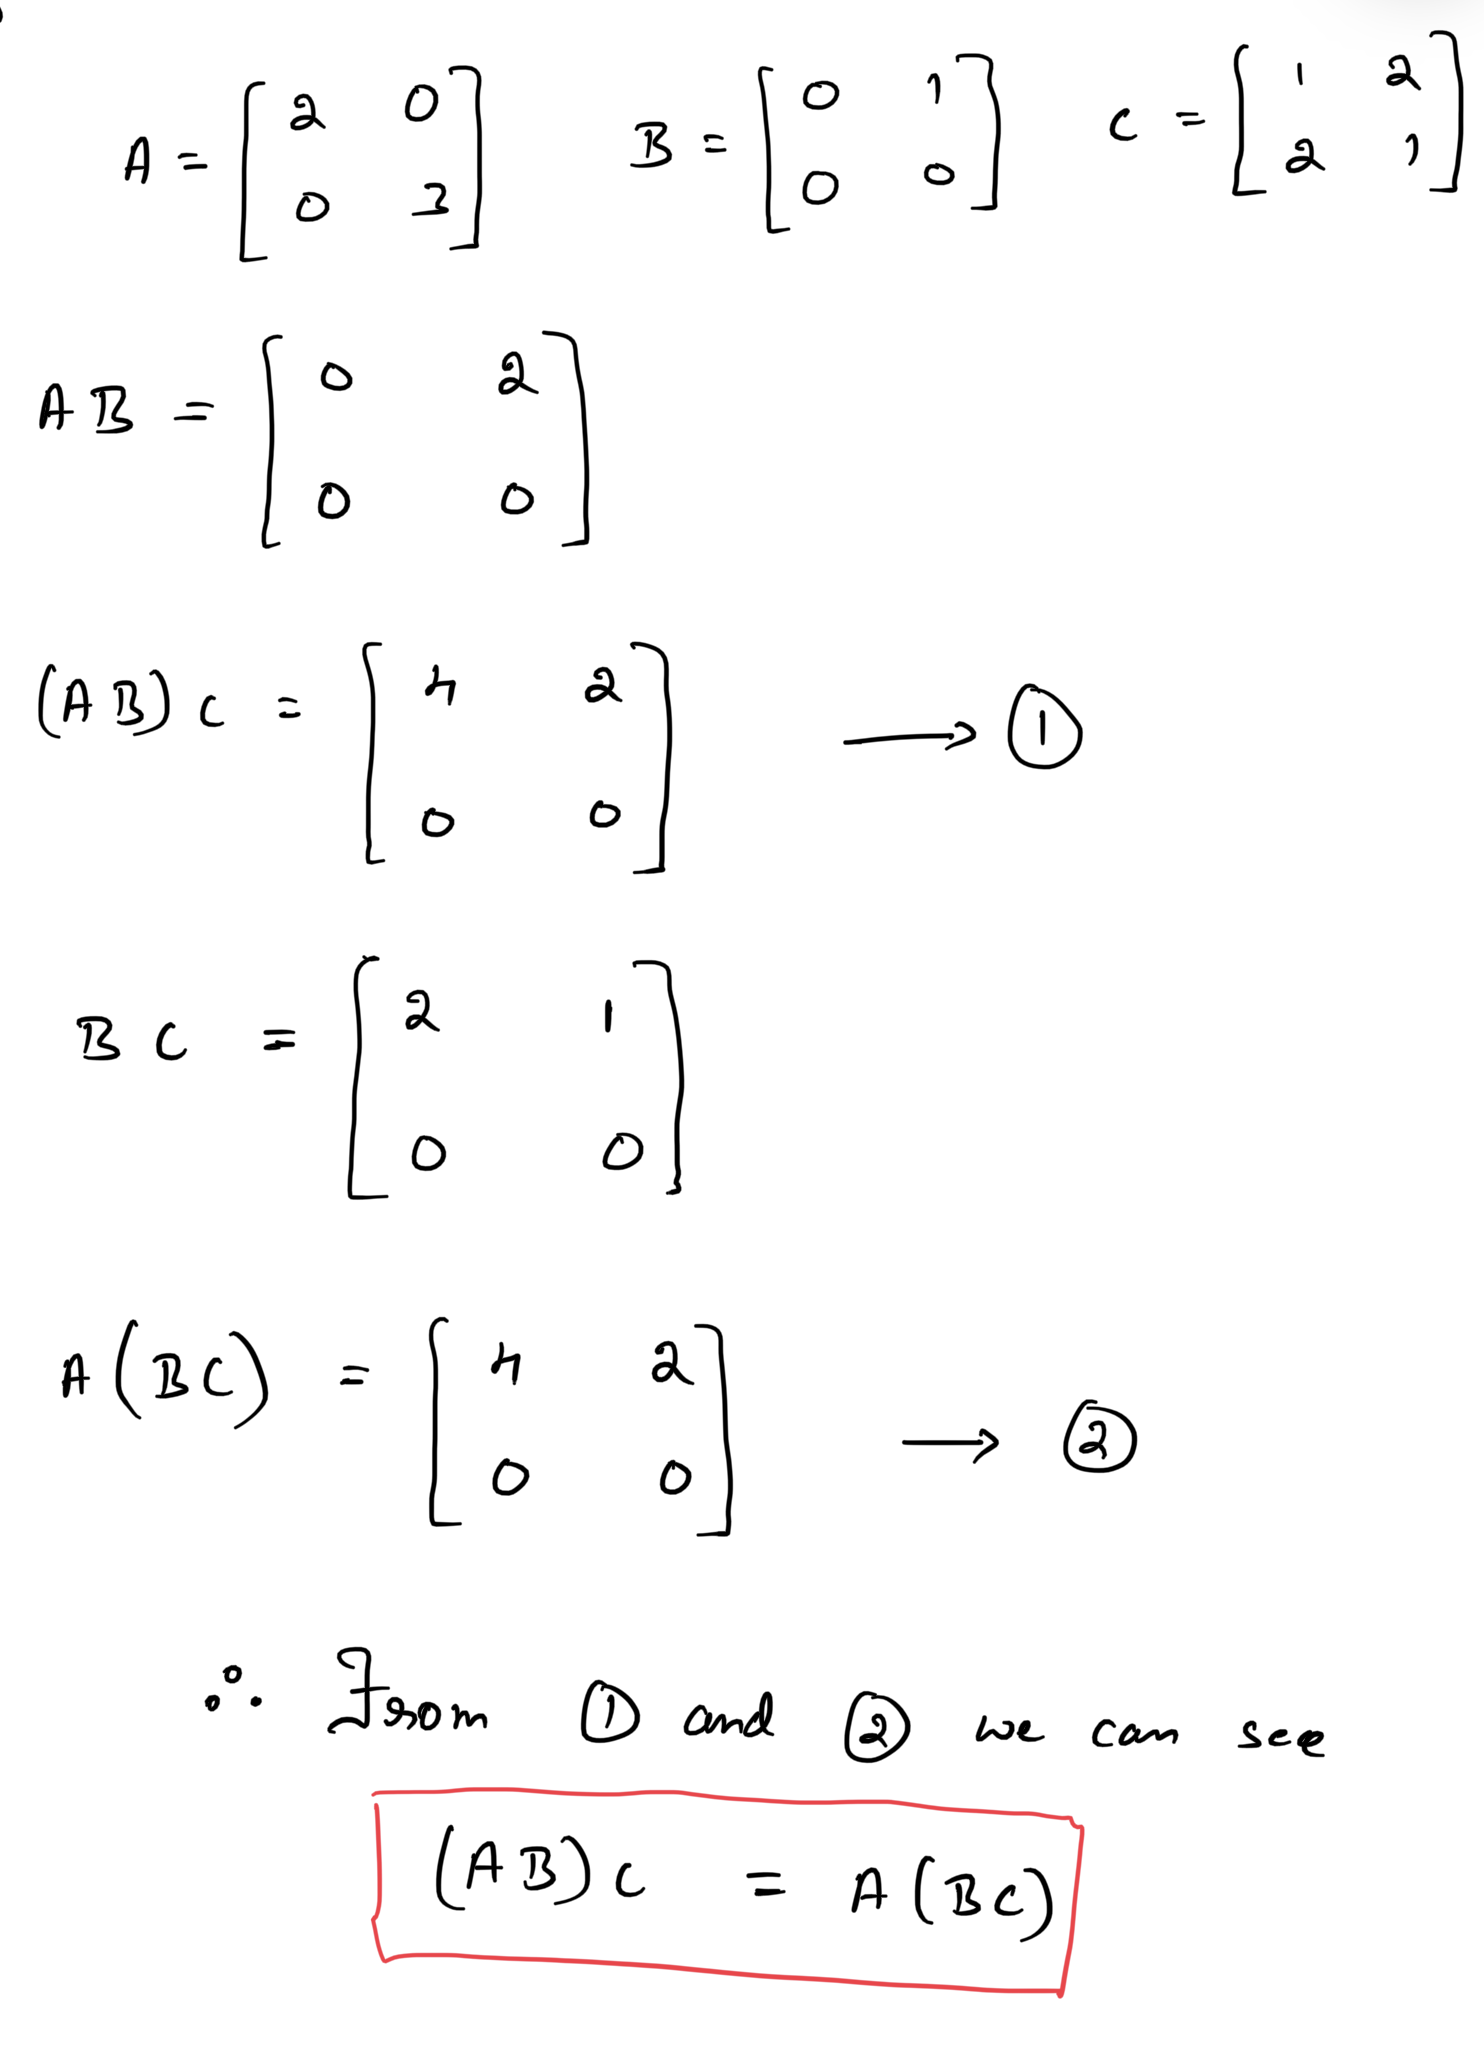 A = [ 2 0 B = [ 0 1 C = [ 1 2
0 3 ] 0 0 ] 2 1 ]
AB = [ 0 2
0 0 ]
(AB)C = [ 4 2
0 0 ] → ①
BC = [ 2 1
0 0 ]
A(BC) = [ 4 2
0 0 ] → ②
∴ From ① and ② we can see
(AB)C = A(BC)